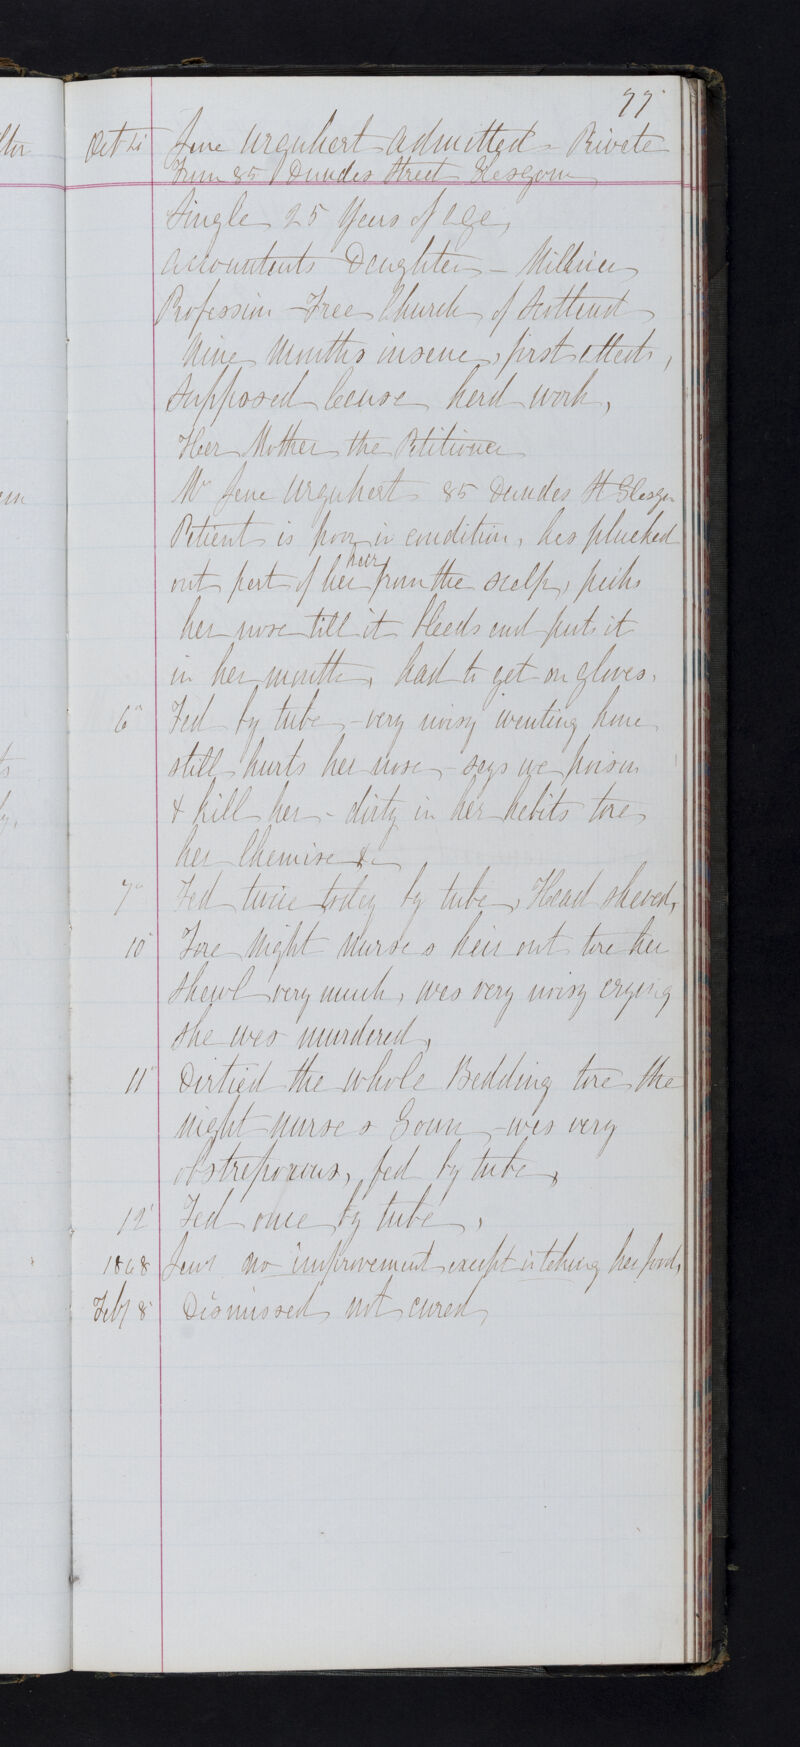 77
Oct 4 Jane Urquhart Admitted - Private
From 85 Dundas Street Glasgow
Single 25 Years of age,
Accountants Daughter - Milliner
Profession - Free Church of Scotland
Nine Months insane, first attack,
Supposed Cause hard work,
Her Mother the Petitioner
Mrs Jane Urquhart 85 Dundas St Glasgow
Patient is poor in condition, has plucked
out part of her hair from the scalp, picks
her nose till it bleeds and puts it
in her mouth, had to get on gloves.
6" Fed by tube - very noisy wanting home
still hurts her nose - says we poison
& kill her - dirty in her habits tore
her Chemise &c
7" Fed twice today by tube, Head shaved,
10" Tore Night nurses hair out tore her
Shawl very much, was very noisy crying
she was murdered,
11" Dirtied the whole Bedding tore the
night nurses Goun - was very
obstreporous, fed by tube,
12" Fed once by tube,
1868 Jany no improvement except in taking her food,
Feby 8" Dismissed not cured